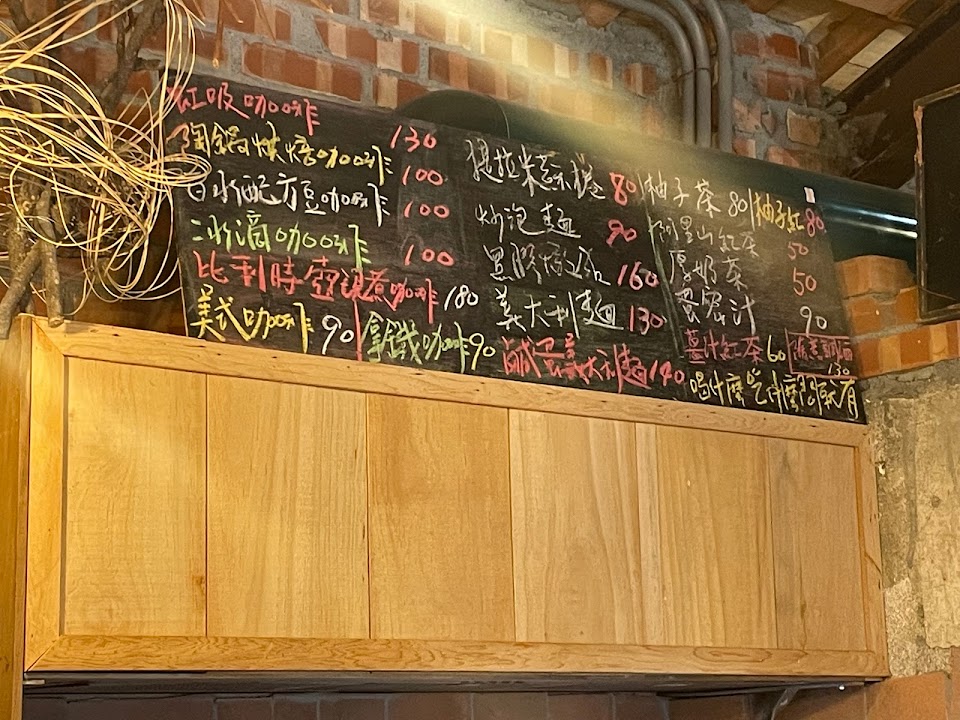 虹吸咖啡 130
陶鍋烘焙咖啡 100
白水配方豆咖啡 100
冰滴咖啡 100
比利時壺現煮咖啡 180
美式咖啡 90 拿鐵咖啡 90
提拉米蘇 80
炒泡麵 90
黑胡椒 160
義大利麵 130
鹹蛋義大利麵 140
柚子茶 80 柚子紅 80
阿里山紅茶 50
厚奶茶 50
汁 90
薑汁紅茶 60
130
喝什麼吃什麼問就有